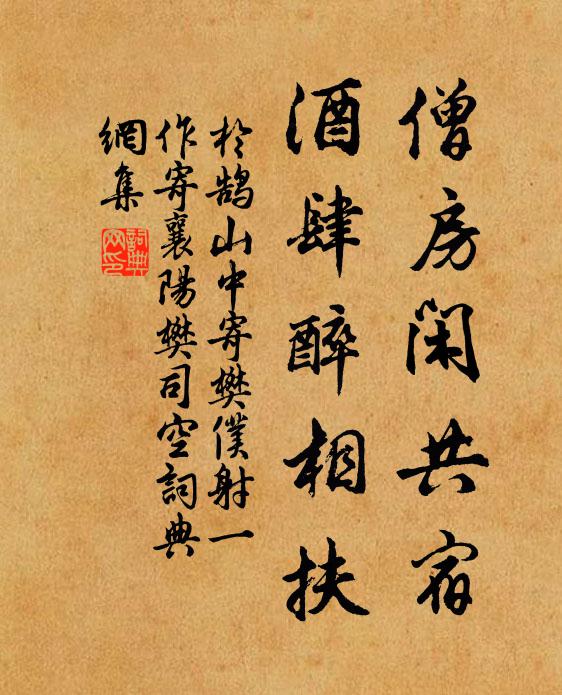 僧房闲共宿
酒肆醉相扶
於鹄山中寄樊僕射一
作寄襄陽樊司空詞典
網集
詞典
网印